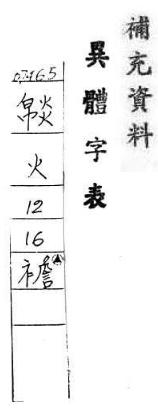 補充資料
異體字表
07465
火
12
16
襜